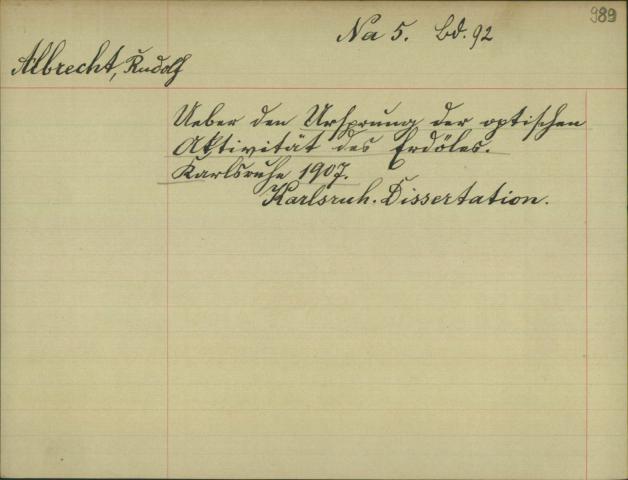 989
Na 5. Bd. 92
Albrecht, Rudolf
Ueber den Ursprung der optischen
Aktivität des Erdöles.
Karlsruhe 1907.
Karlsruh. Dissertation.